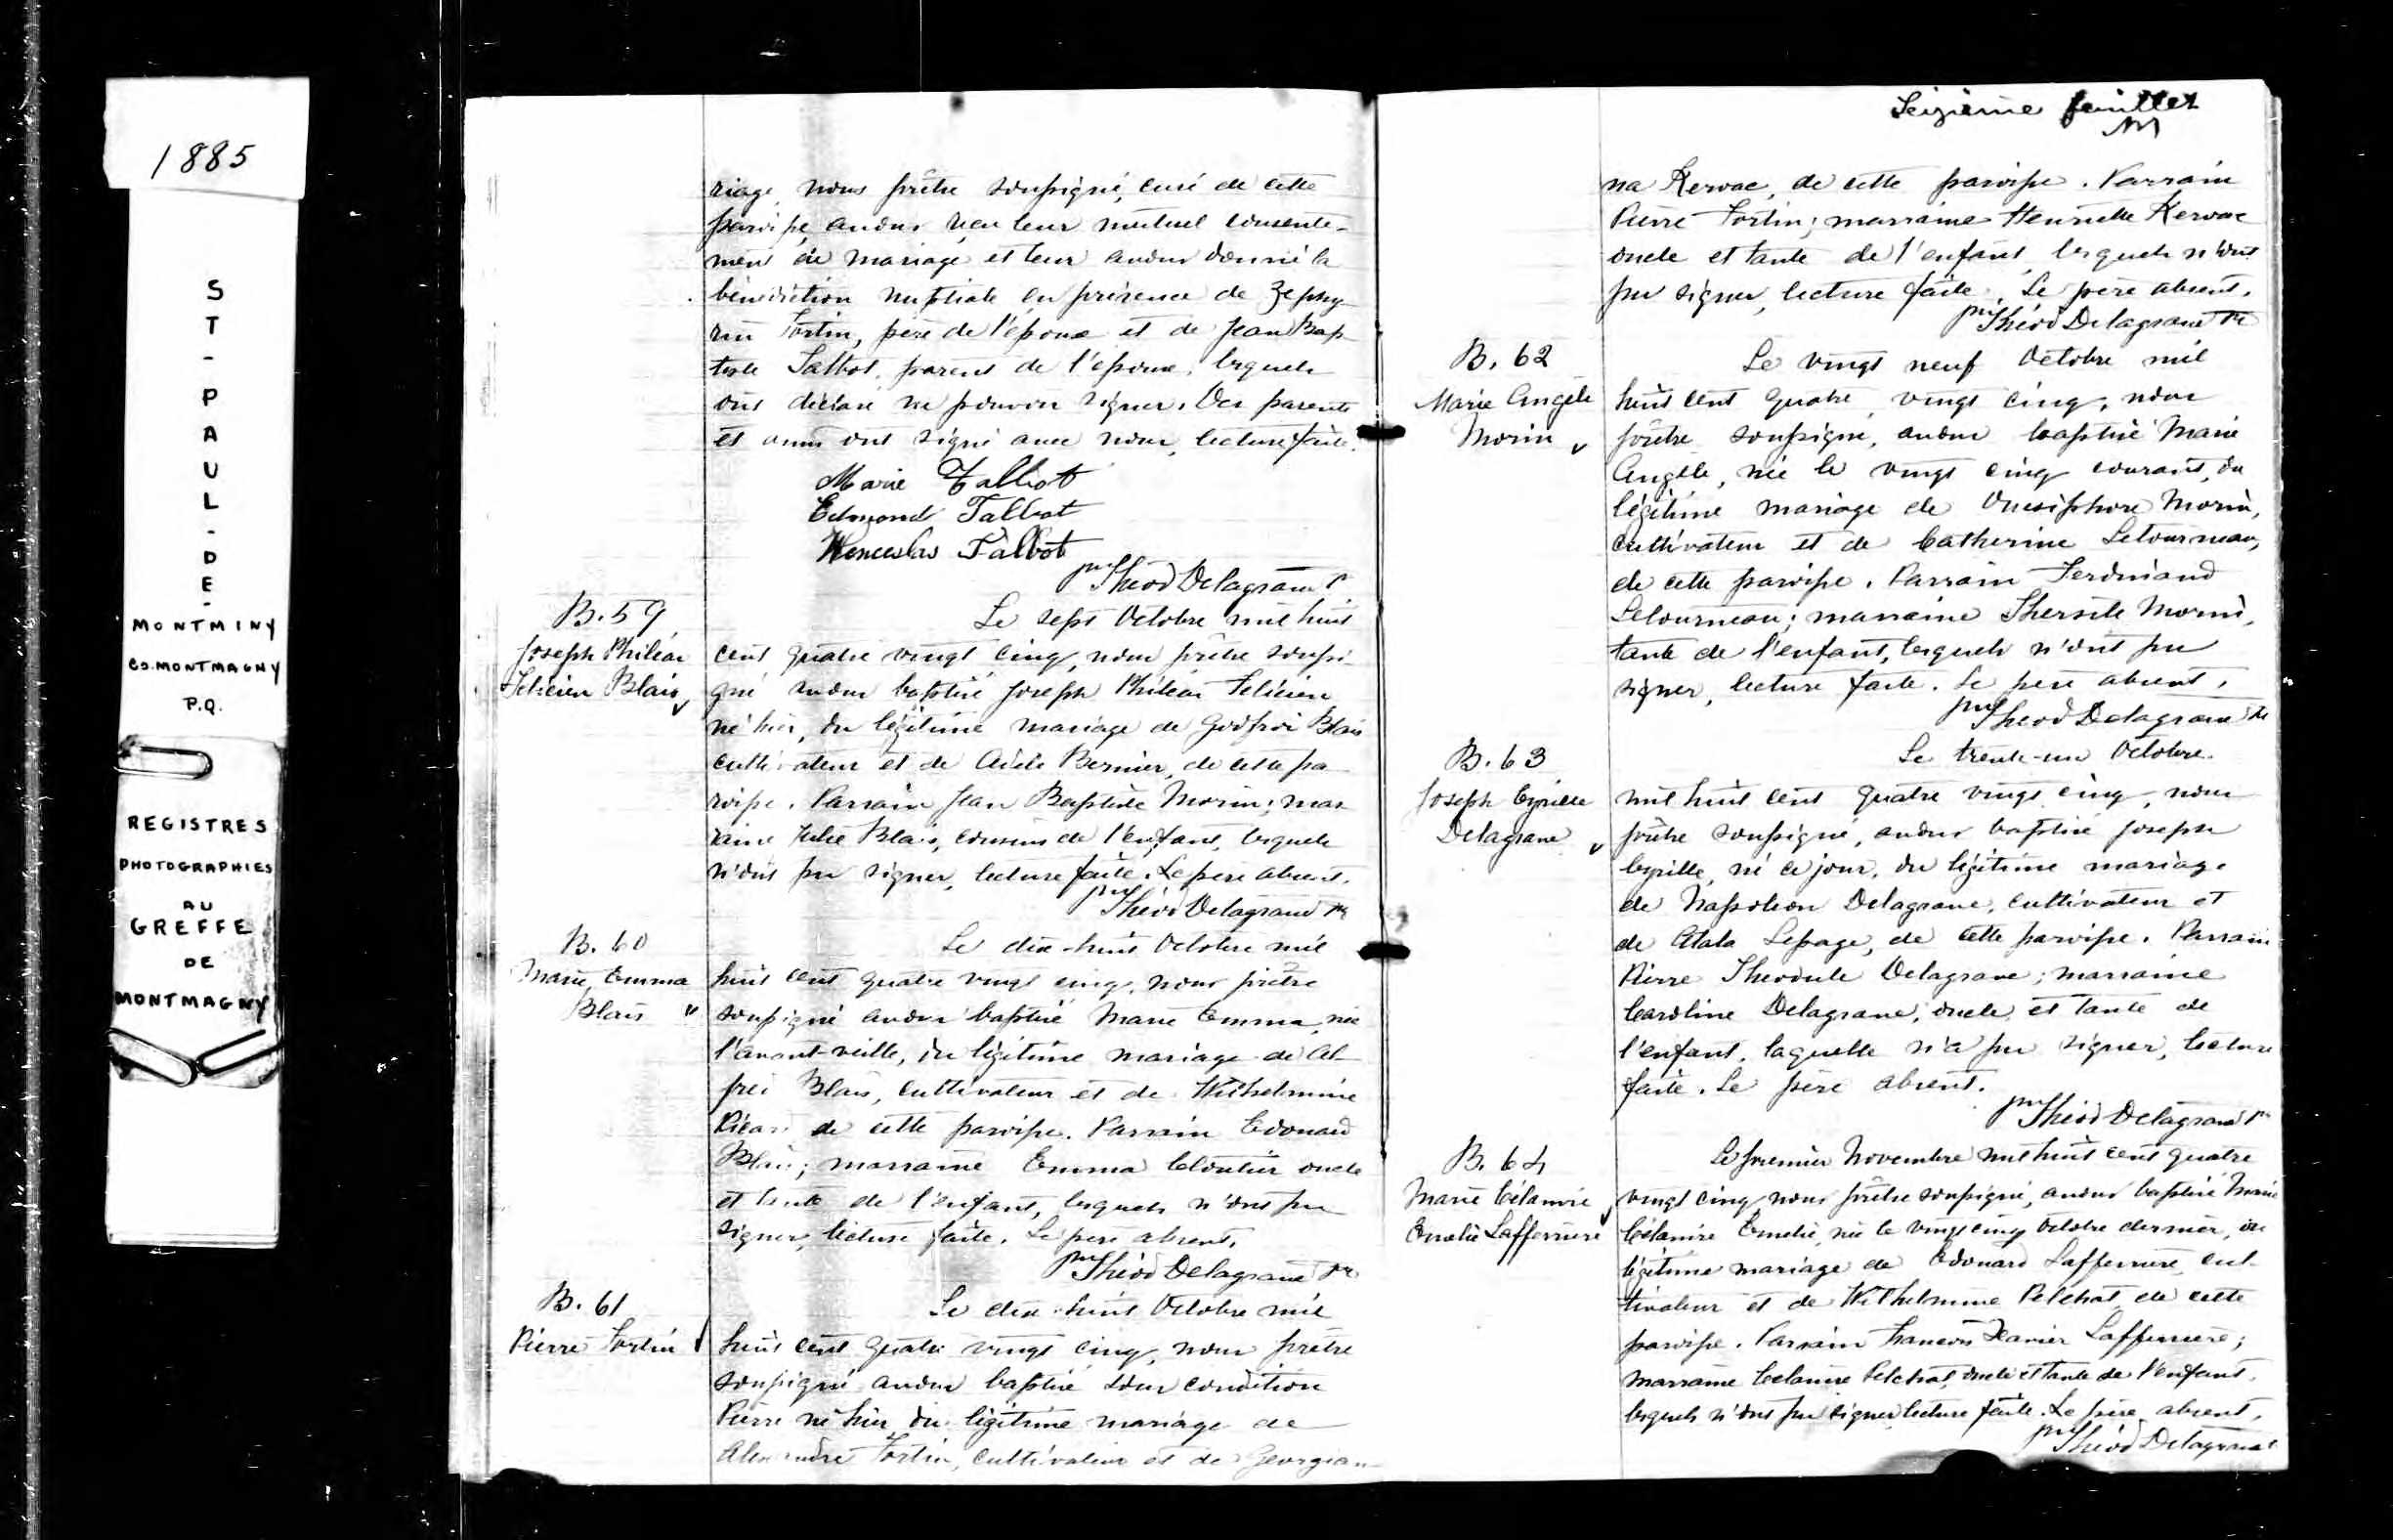 1885
ST-PAUL-DE-
MONTMINY
CO. MONTMAGNY
P.Q.
REGISTRES
PHOTOGRAPHIES
AU
GREFFE
DE
MONTMAGNY
riage, nous prêtre soussigné, curé de cette
paroisse, avons reçu leur mutuel consente-
ment de mariage et leur avons donné la
bénédiction nuptiale en présence de Zephy-
rin Fortin, père de l'époux et de Jean Bap-
tiste Talbot, parent de l'épouse, lesquels
ont déclaré ne pouvoir signer. Des parents
et amis ont signé avec nous, lecture faite.
Marie Talbot
Edmond Talbot
Wenceslas Talbot
Théod Delagrave Ptre
B. 59
Joseph Philéas
Felicien Blais
Le sept Octobre mil huit
cent quatre vingt cinq, nous prêtre soussi-
gné avons baptisé Joseph Philéas Felicien
né hier, du légitime mariage de Godfroi Blais
cultivateur et de Adèle Bernier, de cette pa-
roisse. Parrain Jean Baptiste Morin; mar-
raine Julie Blais, cousins de l'enfant, lesquels
n'ont pu signer, lecture faite. Le père absent.
Théod Delagrave Ptre
B. 60
Marie Emma
Blais
Le dix-huit Octobre mil
huit cent quatre vingt cinq, nous prêtre
soussigné avons baptisé Marie Emma, née
l'avant-veille, du légitime mariage de Al-
fred Blais, cultivateur et de Wilhelmine
Picard de cette paroisse. Parrain Edouard
Blais; marraine Emma Cloutier oncle
et tante de l'enfant, lesquels n'ont pu
signer, lecture faite. Le père absent.
Théod Delagrave Ptre
B. 61
Pierre Fortin
Le dix-huit Octobre mil
huit cent quatre vingt cinq, nous prêtre
soussigné avons baptisé sous condition
Pierre né hier, du légitime mariage de
Alexandre Fortin, cultivateur et de Georgian-
Seizième feuillet
na Kervac, de cette paroisse. Parrain
Pierre Fortin; marraine Henriette Kervac
oncle et tante de l'enfant, lesquels n'ont
pu signer, lecture faite. Le père absent.
Théod Delagrave Ptre
B. 62
Marie Angèle
Morin
Le vingt neuf Octobre mil
huit cent quatre vingt cinq, nous
prêtre soussigné, avons baptisé Marie
Angèle, née le vingt cinq courant, du
légitime mariage de Onesiphore Morin,
cultivateur et de Catherine Letourneau,
de cette paroisse. Parrain Ferdinand
Letourneau; marraine Thersile Morin,
tante de l'enfant, lesquels n'ont pu
signer, lecture faite. Le père absent.
Théod Delagrave Ptre
B. 63
Joseph Cyrille
Delagrave
Le trente-un Octobre
mil huit cent quatre vingt cinq, nous
prêtre soussigné, avons baptisé Joseph
Cyrille, né ce jour, du légitime mariage
de Napoléon Delagrave, cultivateur et
de Atala Lepage, de cette paroisse. Parrain
Pierre Theodule Delagrave; marraine
Caroline Delagrave, oncle et tante de
l'enfant, laquelle n'a pu signer, lecture
faite. Le père absent.
Théod Delagrave Ptre
B. 64
Marie Célanire
Emelie Lafferriere
Le premier Novembre mil huit cent quatre
vingt cinq nous prêtre soussigné, avons baptisé Marie
Célanire Emelie, née le vingt cinq Octobre dernier, du
légitime mariage de Edouard Lafferriere, cul-
tivateur et de Wilhelmine Pelchat de cette
paroisse. Parrain François Xavier Lafferriere;
marraine Celanire Pelchat, oncle et tante de l'enfant,
lesquels n'ont pu signer, lecture faite. Le père absent.
Théod Delagrave